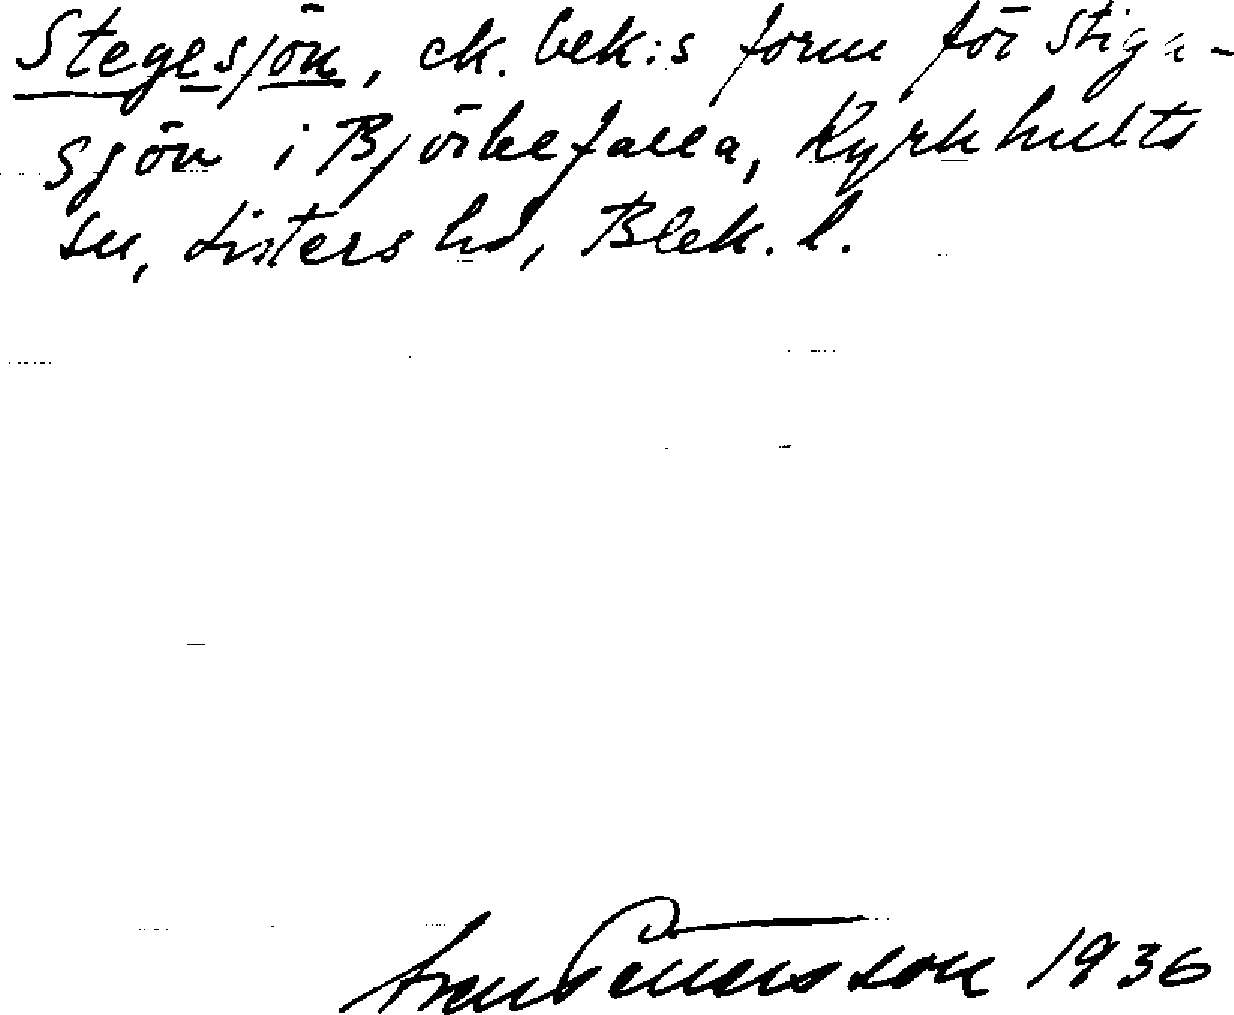 Stegesjön, ek. bek:s form för Stiga-
sjön i Björkefalla, Kyrkhults
sn, Listers hd, Blek. l.
Sven Pettersson 1936